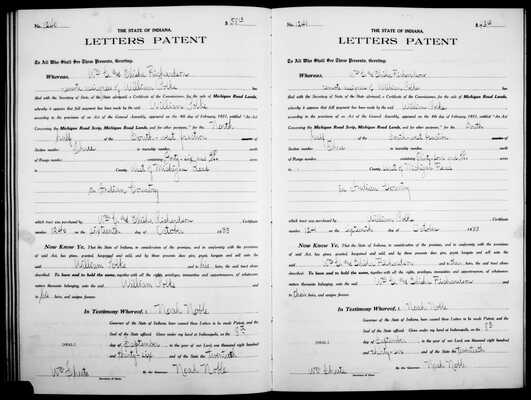 No. 1240
THE STATE OF INDIANA.
LETTERS PATENT
To All Who Shall See These Presents, Greeting.
Whereas, Wm C. & Elisha Richardson
remote assignees of William Polke has
filed with the Secretary of State (the State aforesaid) a Certificate of the Commissioners, for the sale of Michigan Road Lands,
whereby it appears that full payment has been made by the said William Polke
according to the provisions of an Act of the General Assembly, approved on the 4th day of February, 1832, entitled "An Act
Concerning the Michigan Road Scrip, Michigan Road Lands, and for other purposes," for the North
half of the South east fraction of
Section number Three in township number north
of Range number containing Forty-six and acres
in County West of Michigan Road
in Indian Country
which tract was purchased by Wm C. & Elisha Richardson Certificate
number 1240 on the sixteenth day of October 1833
Now Know Ye, That the State of Indiana, in consideration of the premises, and in conformity with the provisions
of said Act, has given, granted, bargained and sold, and by these presents does give, grant, bargain and sell unto the
said William Polke and to his heirs, the said tract above
described. To have and to hold the same, together with all the rights, privileges, immunities and appurtenances, of whatsoever
nature thereunto belonging, unto the said William Polke and
to his heirs, and assigns forever.
In Testimony Whereof, I, Noah Noble
Governor of the State of Indiana, have caused these Letters to be made Patent, and the
Seal of the State affixed. Given under my hand at Indianapolis, on the
[SEAL] day of September in the year of our Lord, one thousand eight hundred
and thirty six and of the State the twentieth
Wm Sheets By the Governor: Noah Noble
Secretary of State.
No. 1241
THE STATE OF INDIANA.
LETTERS PATENT
To All Who Shall See These Presents, Greeting.
Whereas, Wm C. & Elisha Richardson
remote assignees of William Polke has
filed with the Secretary of State (the State aforesaid) a Certificate of the Commissioners, for the sale of Michigan Road Lands,
whereby it appears that full payment has been made by the said William Polke
according to the provisions of an Act of the General Assembly, approved on the 4th day of February, 1832, entitled "An Act
Concerning the Michigan Road Scrip, Michigan Road Lands, and for other purposes," for the North
half of the west fraction of
Section number Three in township number north
of Range number containing and acres
in County West of Michigan Road
in Indian Country
which tract was purchased by William Polke Certificate
number 1241 on the sixteenth day of October 1833
Now Know Ye, That the State of Indiana, in consideration of the premises, and in conformity with the provisions
of said Act, has given, granted, bargained and sold, and by these presents does give, grant, bargain and sell unto the
said Wm C. & Elisha Richardson and to their heirs, the said tract above
described. To have and to hold the same, together with all the rights, privileges, immunities and appurtenances, of whatsoever
nature thereunto belonging, unto the said Wm C. & Elisha Richardson and
to their heirs, and assigns forever.
In Testimony Whereof, I, Noah Noble
Governor of the State of Indiana, have caused these Letters to be made Patent, and the
Seal of the State affixed. Given under my hand at Indianapolis, on the
[SEAL] day of September in the year of our Lord, one thousand eight hundred
and thirty-six and of the State the twentieth
Wm Sheets By the Governor: Noah Noble
Secretary of State.